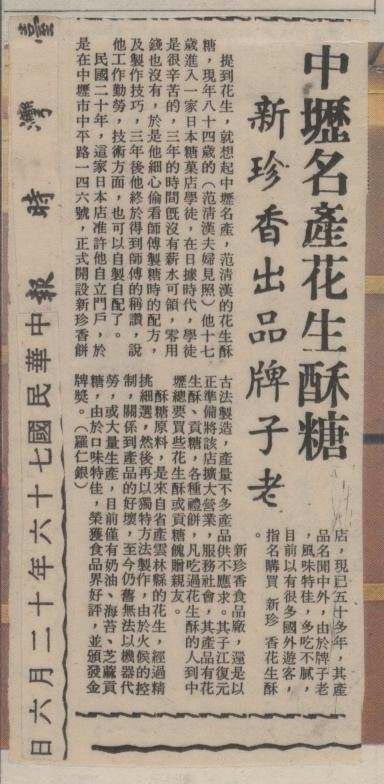 中壢名產花生酥糖
新珍香出品牌子老
提到花生,就想起中壢名產,范清漢的花生酥
糖,現年八十四歲的(范清漢夫婦見照)他十七
歲進入一家日本糖菓店學徒,在日據時代,學徒
是很辛苦的,三年的時間既沒有薪水可領,零用
錢也沒有,於是他細心偷看師傅製糖時的配方,
及製作技巧,三年後他終於得到師傅的稱讚,說
他工作勤勞,技術方面,也可以自製自配了。
民國二十年,這家日本店准許他自立門戶,於
是在中壢市中平路一四六號,正式開設新珍香餅
店,現已五十多年,其產
品名聞中外,由於牌子老
,風味特佳,多吃不膩,
目前以有很多國外遊客,
指名購買 新珍 香花生酥
。
新珍香食品廠,還是以
古法製造,產量不多產品供不應求。其子江復元
正準備將該店擴大營業,服務社會,其產品有花
生酥、貢糖,各種禮餅,凡吃過花生酥的人到中
壢總要買些花生酥或貢糖餽贈親友。
酥糖原料,是來自省產雲林縣的花生,經過精
挑細選,然後再以獨特方法製作,由於火候的控
制,關係到產品的好壞,至今仍舊無法以機器代
勞,或大量生產,目前僅有奶油、海苔、芝蔴貢
糖,由於口味特佳,榮獲食品界好評,並頒發金
牌獎。(羅仁銀)
臺灣時報
中華民國七十六年十二月六日